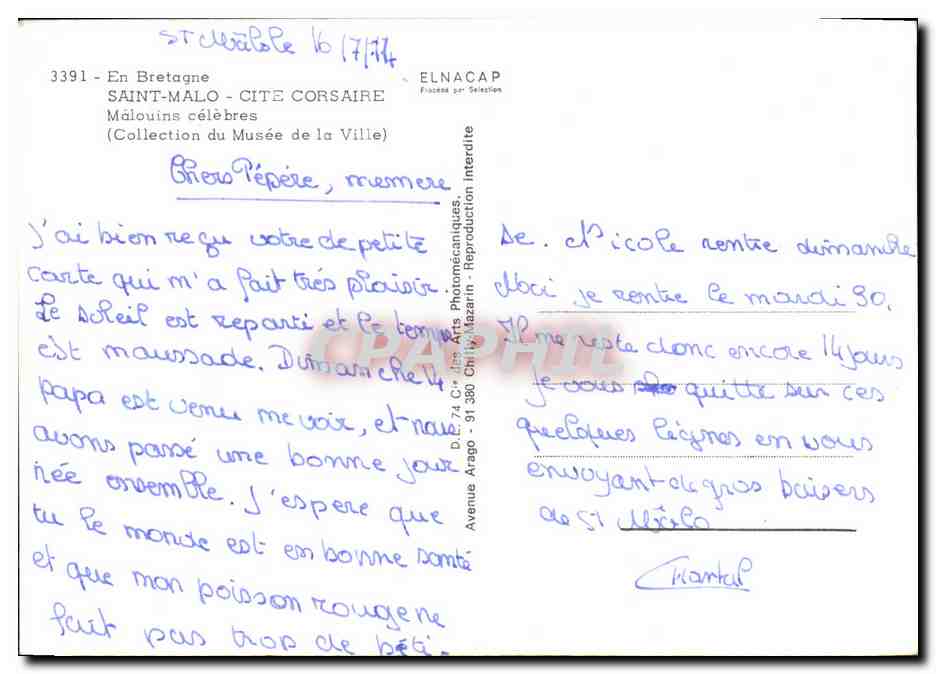 St Mâlole 16/7/74
3391 - En Bretagne
SAINT-MALO - CITE CORSAIRE
Mâlouins célèbres
(Collection du Musée de la Ville)
ELNACAP
Procédé par Selection
Chers Pépére, memere
J'ai bien reçu votre de petite
carte qui m'a fait trés plaisir.
Le soleil est reparti et le temps
est maussade. Dimanche 14
papa est venu me voir, et nous
avons passé une bonne jour
née ensemble. J'espere que
tu le monde est en bonne santé
et que mon poisson rouge ne
fait pas trop de bêti-
D.L. 74 Cie des Arts Photomécaniques,
Avenue Arago - 91 380 Chilly-Mazarin - Reproduction Interdite
se. Nicole rentre dimanche
Moi je rentre le mardi 30.
Il me reste donc encore 14 jours
Je vous quitte sur ces
quelques lignes en vous
envoyant de gros baisers
de St Mâlo
Chantal
CPAPHIL